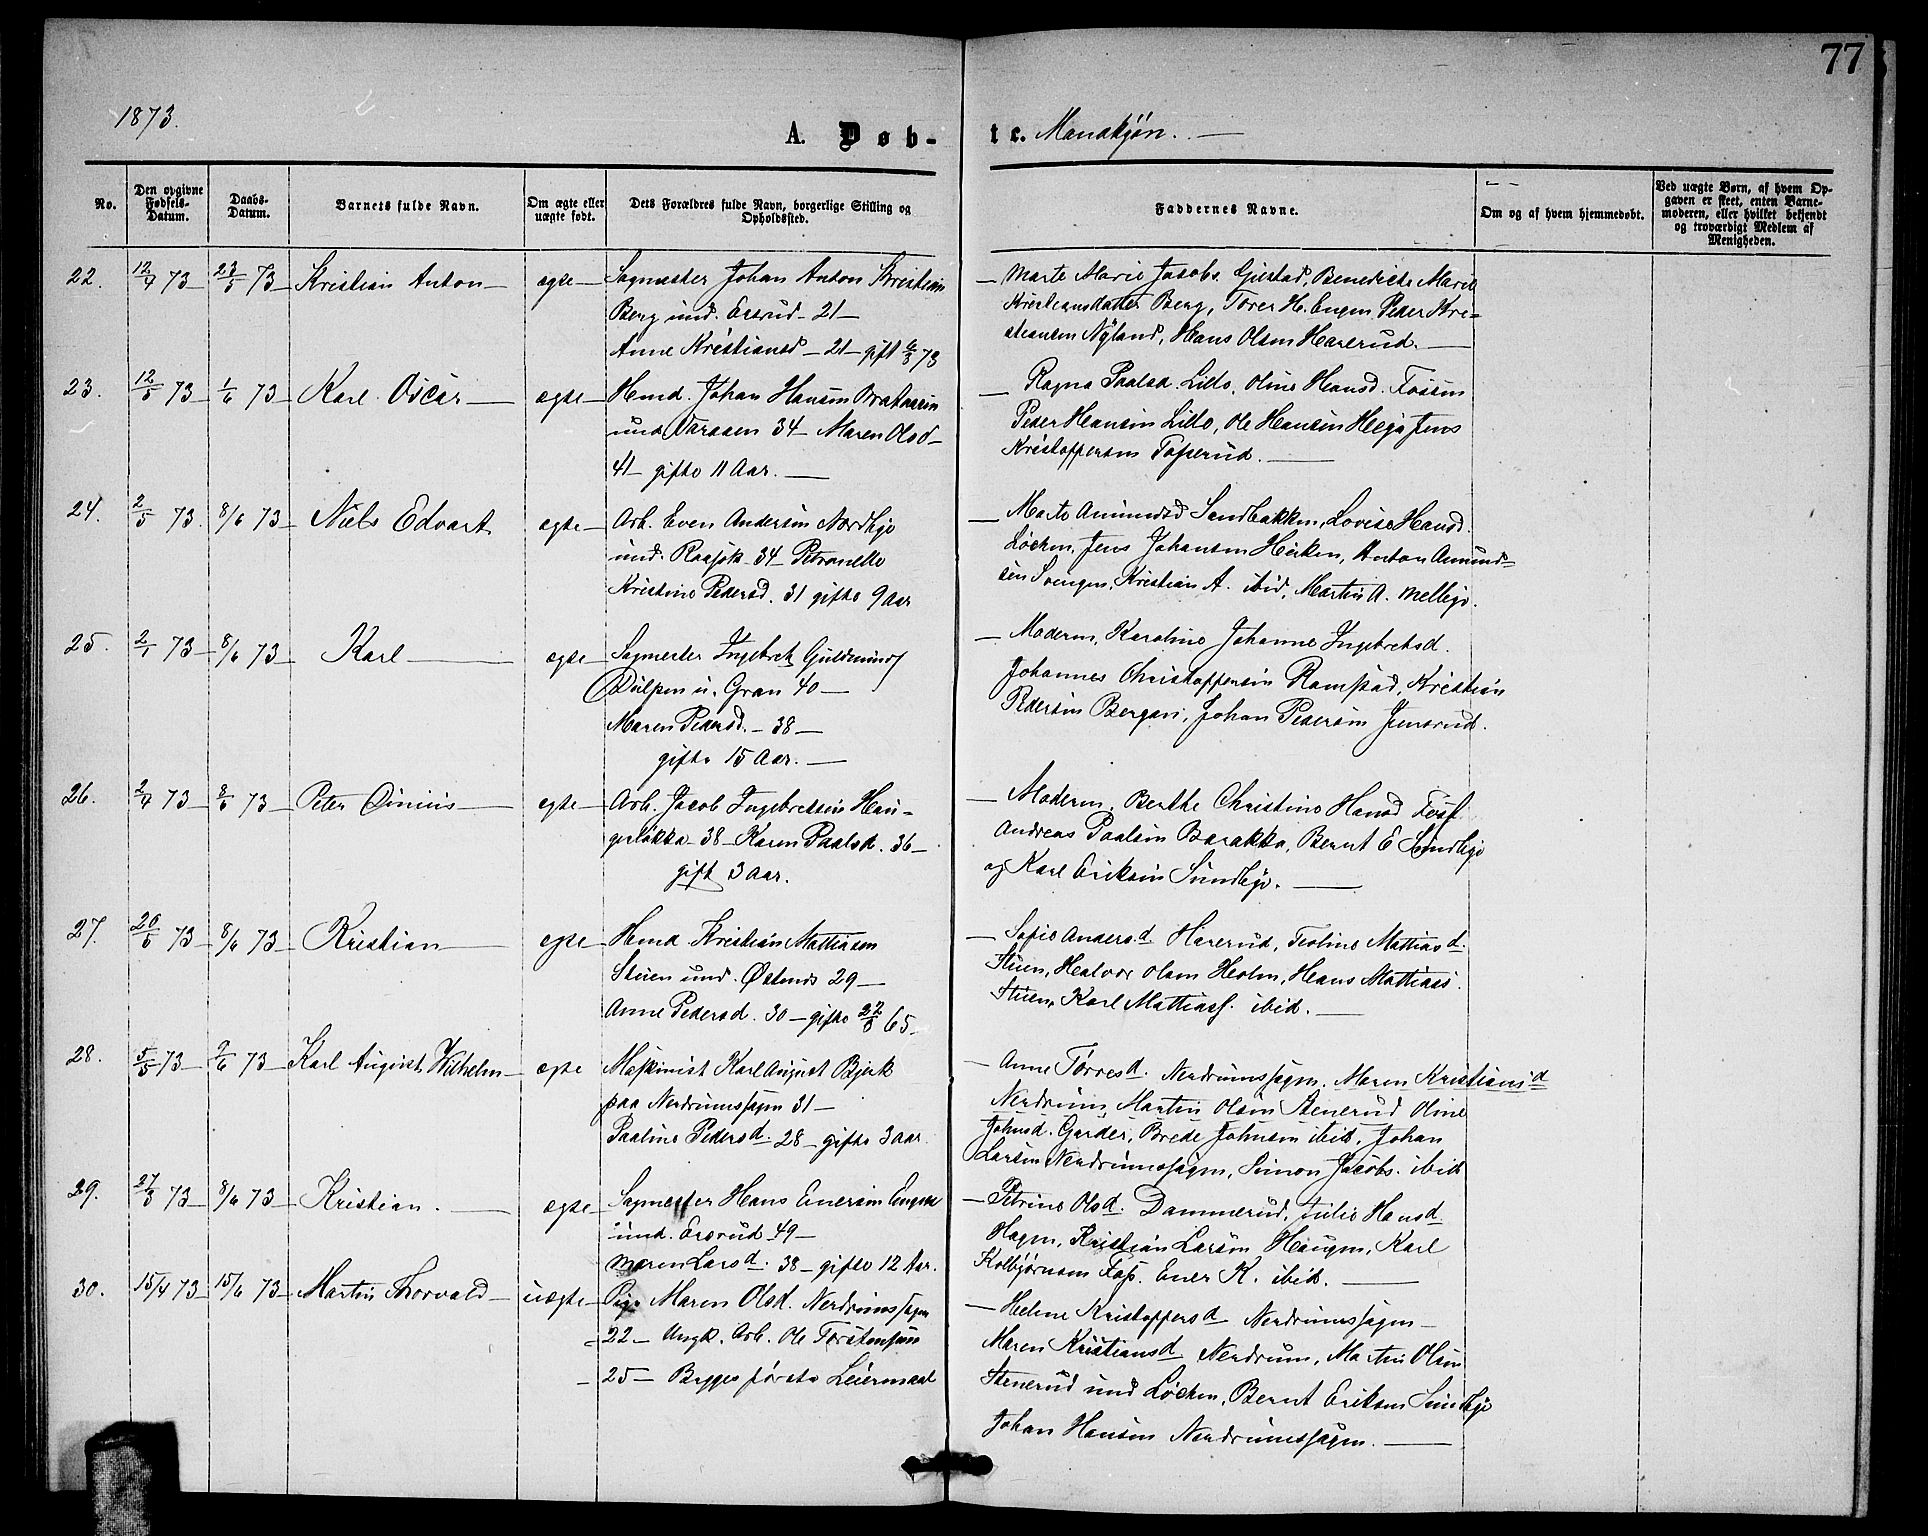 77
1873.
A. Døb-
te. Mandkjøn.
No.
Den opgivne Fødsels-Datum.
Daabs-Datum.
Barnets fulde Navn.
Om ægte eller uægte født.
Dets Forældres fulde Navn, borgerlige Stilling og Opholdssted.
Faddernes Navne.
Om og af hvem hjemmedøbt.
Ved uægte Børn, af hvem Opgaven er skeet, enten Barnemoderen, eller hvilket bekjendt og troværdigt Medlem af Menigheden.
22. 12/4 73 23/5 73 Kristian Anton ægte Sagmester Johan Anton Kristian
Berg und. Ersrud 21
Anne Kristiansd 21 gift 6/3 73
Marte Marie Jacobs. Gjestad, Benedicte Marie
Kristiansdatter Berg, Torer H. Engen Peder Kri-
stiansen Nyland, Hans Olsen Harerud.
23. 12/5 73 1/6 73 Karl Oscar ægte Hmd. Johan Hansen
und 34 Maren Olsd
41 gifte 11 Aar.
Ragna Paalsd. Lillo, Oline Hansd. Fossum
Peder Hansen Lillo, Ole Hansen Jens
Kristoffersen
24. 2/5 73. 8/6 73 Niels Edvart ægte Arb. Even Andersen Nordbye
und. 34 Petronelle
Kristine Pedersd. 31 gifte 9 Aar
Marte Amundsd Sandbakken, Lovise Hansd.
Løchen, Jens Johansen Anton Amund-
sen Kristian A. ibid, Martin A. Melbye.
25. 2/1 73 8/6 73 Karl ægte Sagmester Ingebret
u. Gran 40
Maren Pedersd. 38
gifte 15 Aar.
Moderen, Karoline Johanne Ingebretsd.
Johannes Christoffersen Ramstad, Kristian
Pedersen Bergen, Johan Pedersen
26. 2/4 73 8/6 73 Peter ægte Arb. Jacob Ingebretsen Hau-
gerløkka 38 Karen Paalsd. 36
gift 3 Aar.
Moderen, Berthe Christine Hansd
Andreas Paalsen Barakka, Bernt E Sundbye
og Karl Eriksen Sundbye.
27. 8/6 73 Kristian ægte Hmd Kristian Mattiasen
Stuen und. 29
Anne Pedersd. 30 gifte 65
Sofie Andersd Harerud, Teoline Mattiasd.
Stuen, Halvor Olsen Holm, Hans Mattiass.
Stuen, Karl Mattiass. ibid.
28. 5/5 73 2/6 73 Karl August Wilhelm ægte Maskinist Karl August Bjerk
paa Nerdrumssagen 31
Pauline Pedersd. 28 gifte 3 Aar.
Anne Torresd. Nerdrumssagen. Maren Kristiansd
Nerdrum, Martin Olsen Stenerud Oline
Johnsd. Garder, Brede Johnsen ibid, Johan
Larsen Nerdrumssagen, Simon Jacobs. ibid
29. 27/3 73 8/6 73 Kristian. ægte Sagmester Hans Enersen Engen
und. Ersrud 49
Maren Larsd. 38 gifte 12 Aar.
Petrine Olsd. Dammerud, Julie Hansd
Hagen, Kristian Larsen Haugen, Karl
Kolbjørnsen Foss. Ener K. ibid.
30. 15/4 73 15/6 73 Martin Thorvald uægte Pige Maren Olsd. Nerdrumssagen
22 Ungk. Arb. Ole Torstensen
25 Begges første Leiermaal
Helene Kristoffersd Nerdrumssagen
Maren Kristiansd Nerdrum, Martin Olsen
Stenerud und Løchen, Bernt Eriksen Sundbye
Johan Hansen Nerdrumssagen.